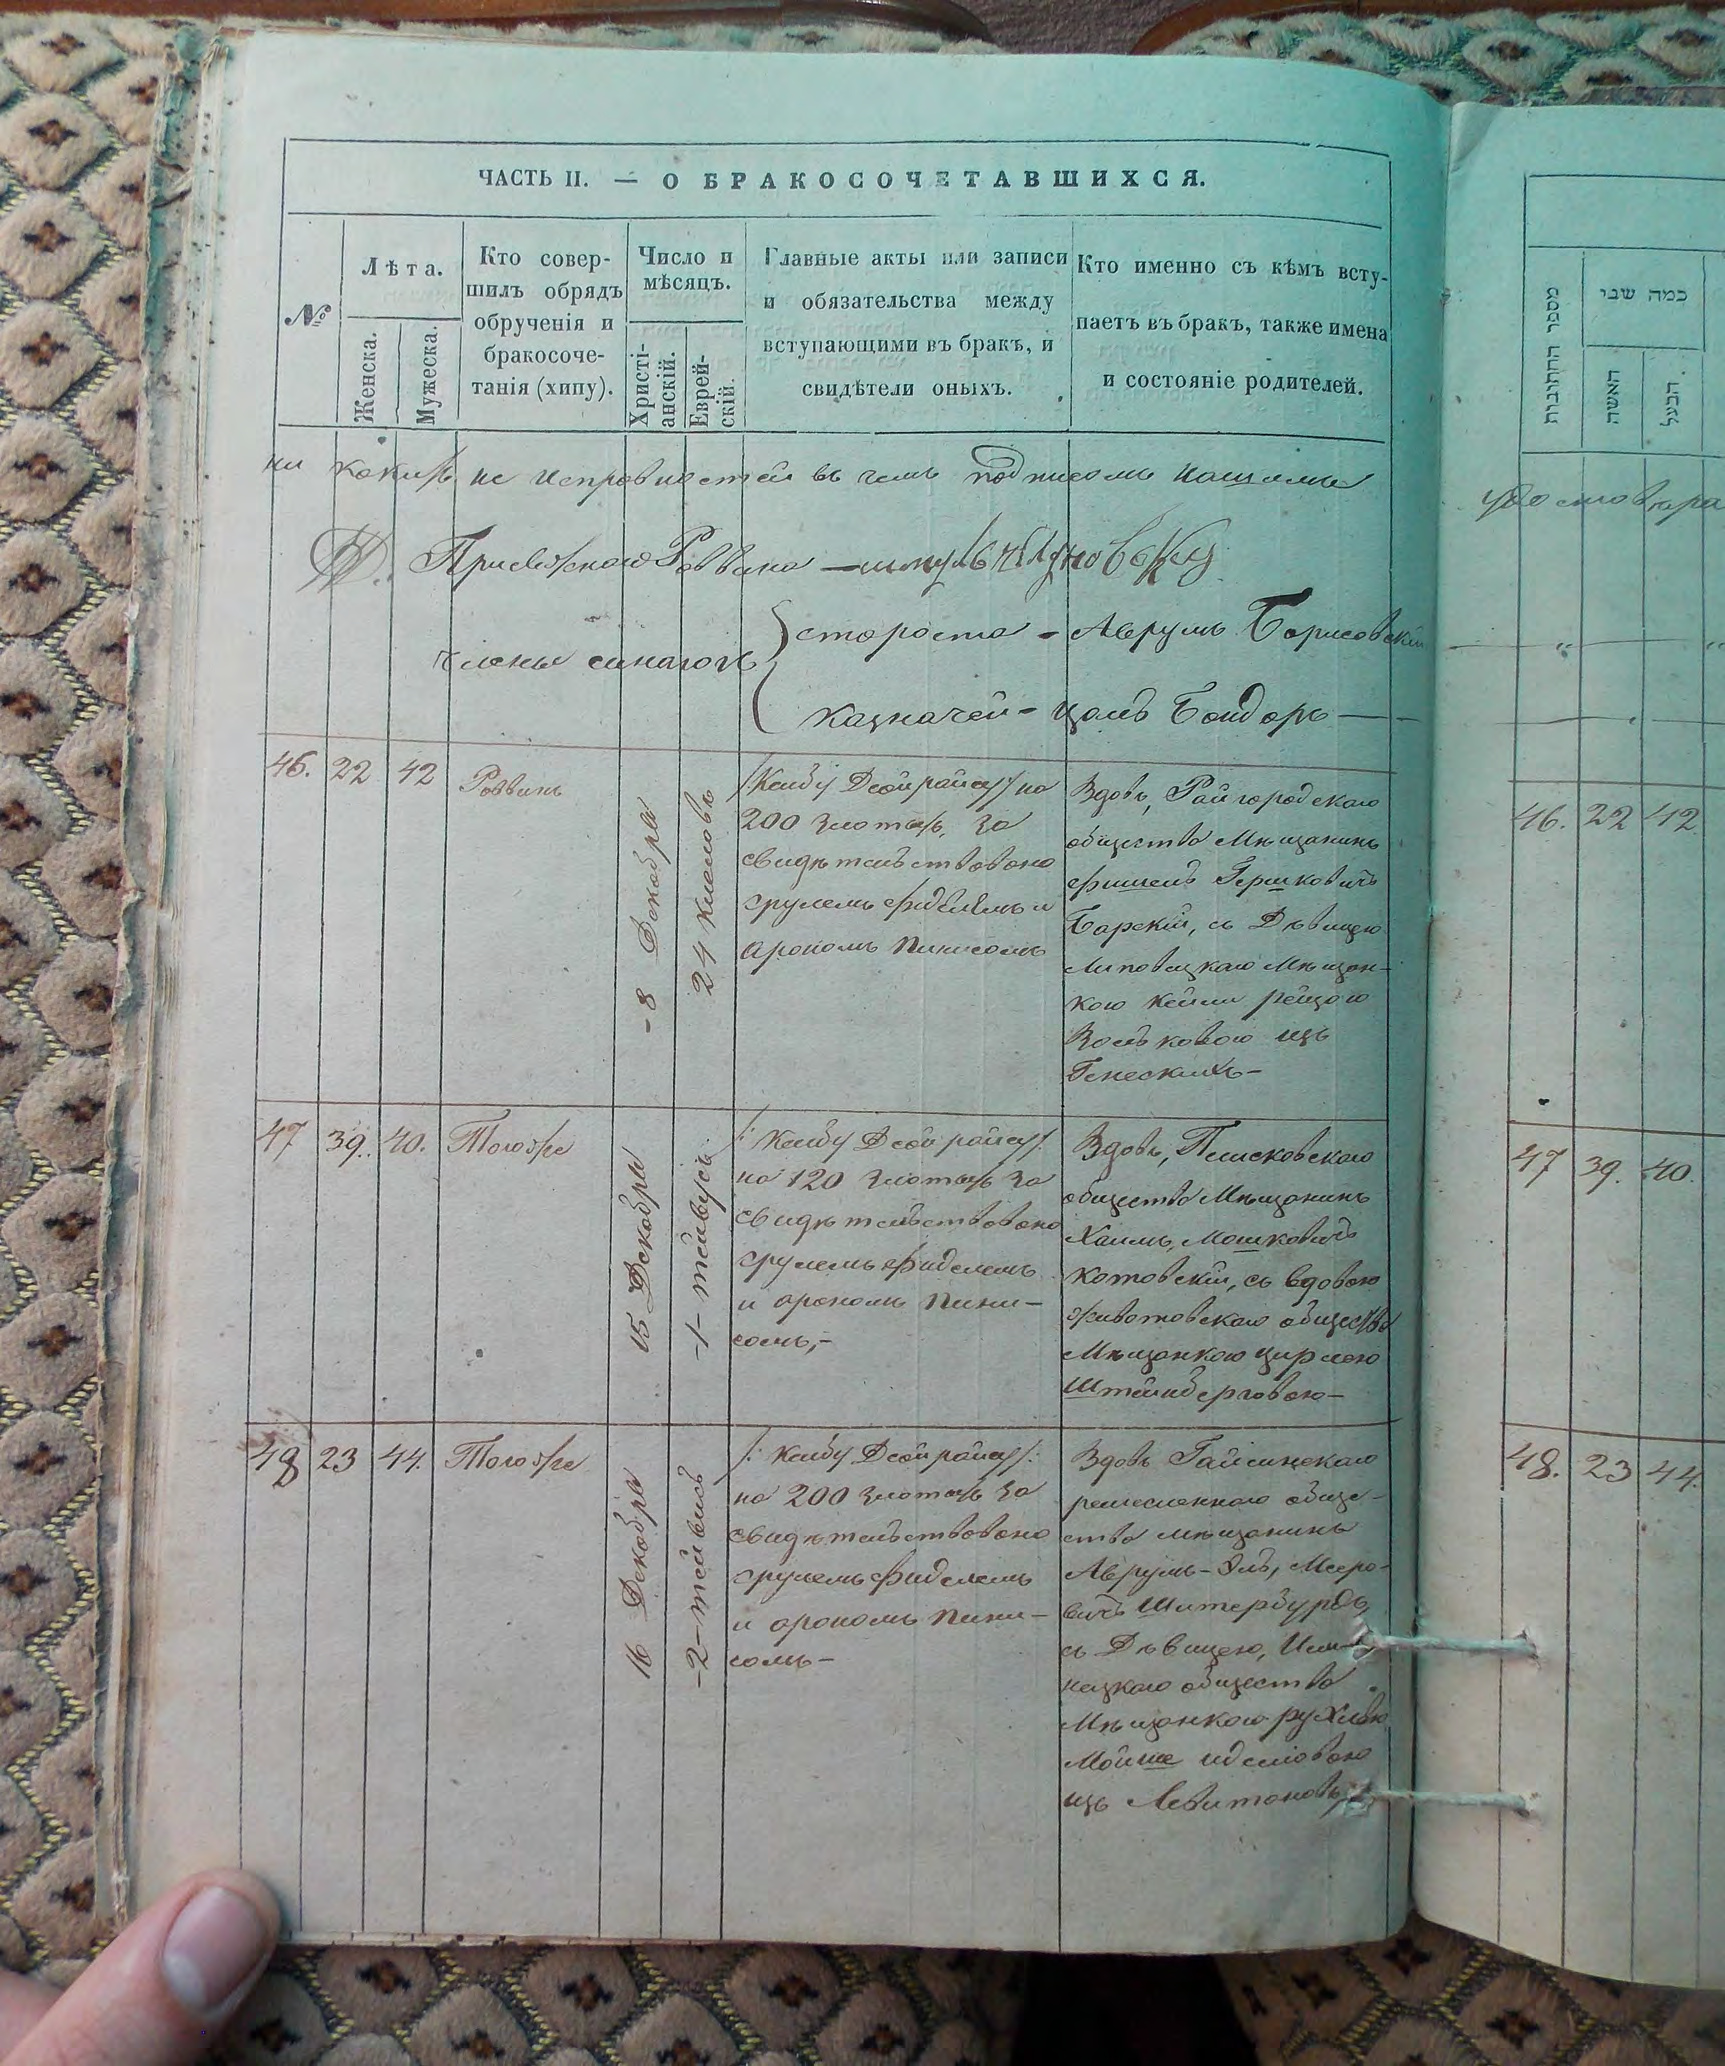 ЧАСТЬ II. — О БРАКОСОЧЕТАВШИХСЯ.
№
Лѣта.
Женска.
Мужеска.
Кто совер-
шилъ обрядъ
обрученія и
бракосоче-
танія (хипу).
Число и
мѣсяцъ.
Христі-
анскій.
Еврей-
скій.
Главные акты или записи
и обязательства между
вступающими въ бракъ, и
свидѣтели оныхъ.
Кто именно съ кѣмъ всту-
паетъ въ бракъ, также имена
и состояніе родителей.
ни какихъ не исправностей въ чемъ подписомъ нашимъ
Раввина
члены синагоги
староста - Аврумъ Борисовскій
казначей - Бондарь —
46. 22 42 Раввинъ
- 8 Декабря
24 кислевъ
на
200 злотыхъ, за
свидѣтельствовано
срулемъ фиделемъ и
арономъ пинисомъ
Вдовъ, Райгородскаго
общества Мѣщанинъ
фишель Гершковичъ
Барскій, съ Дѣвицею
Липовецкаго Мѣщан-
кою рейзою
изъ
47 39. 40. Тотоже
15 Декабря
-1- тейвусъ
на 120 злотыхъ за
свидѣтельствовано
срулемъ фиделемъ
и арономъ пини-
сомъ,-
Вдовъ, Плисковскаго
общества Мѣщанинъ
Хаимъ, Мошковичъ
Котовскій, съ вдовою
Животовскаго общества
Мѣщанкою цирлею
Штейнберговою-
48 23 44. Тотоже
16 Декабря
-2-
на 200 злотыхъ за
свидѣтельствовано
срулемъ фиделемъ
и арономъ пини-
сомъ-
Вдовъ Гайсинскаго
ремесленнаго обще-
ства мѣщанинъ
Аврумъ-Эль, Мееро-
вичъ
съ Дѣвицею, Иль-
нецкаго общества
Мѣщанкою рухлею
Мойше иделіовою
изъ Левитановъ
מספר החתונות
כמה שני
האשה
הבעל
46. 22 42.
47 39. 40.
48. 23 44.